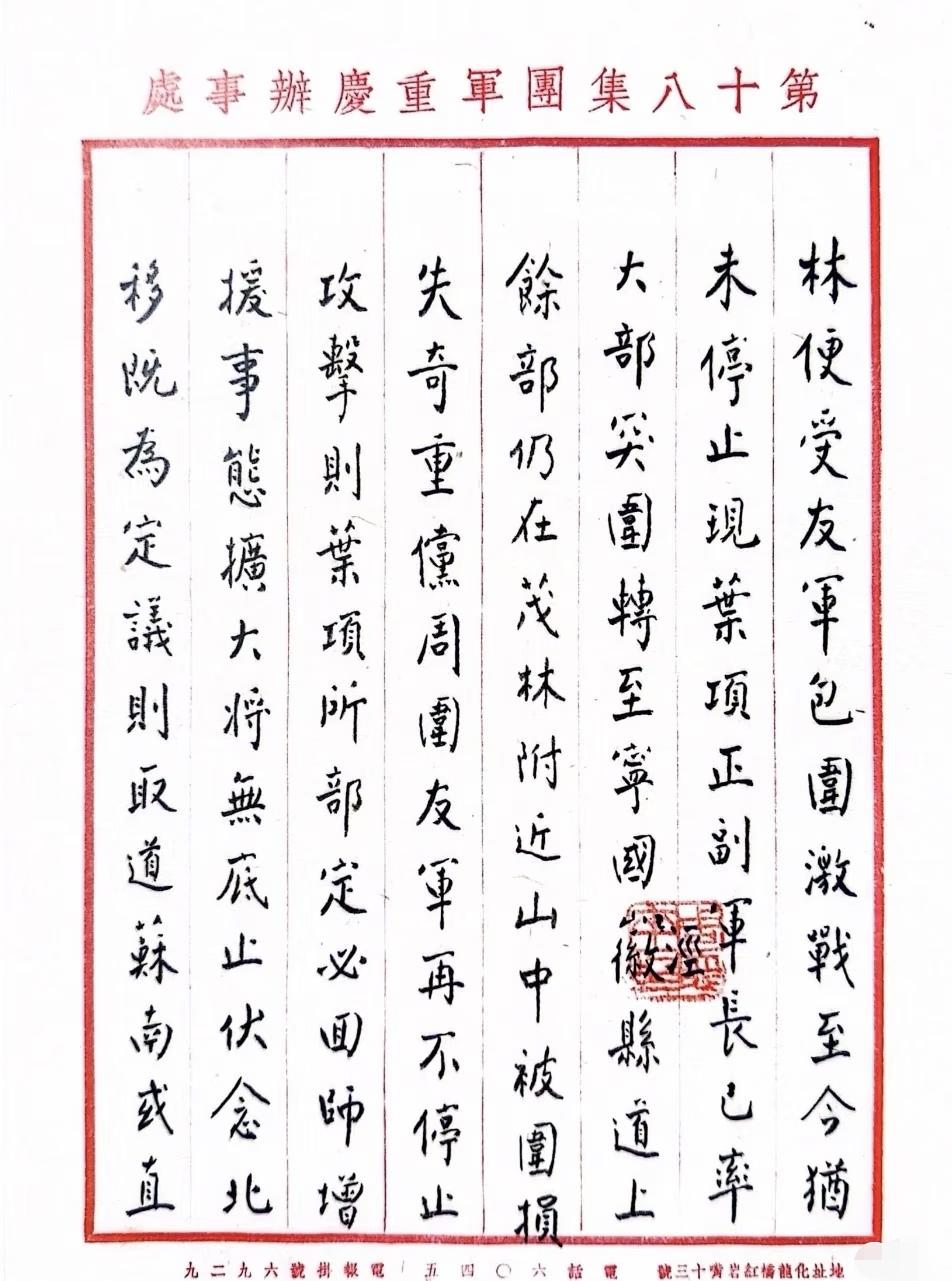 第十八集團軍重慶辦事處
林便受友軍包圍激戰至今猶
未停止現葉項正副軍長已率
大部突圍轉至寧國徽縣道上
涇
餘部仍在茂林附近山中被圍損
失奇重儻周圍友軍再不停止
攻擊則葉項所部定必回師增
援事態擴大將無底止伏念北
移既為定議則取道蘇南或直
地址化龍橋紅岩嘴十三號 電話六〇四五 電報掛號六九二九